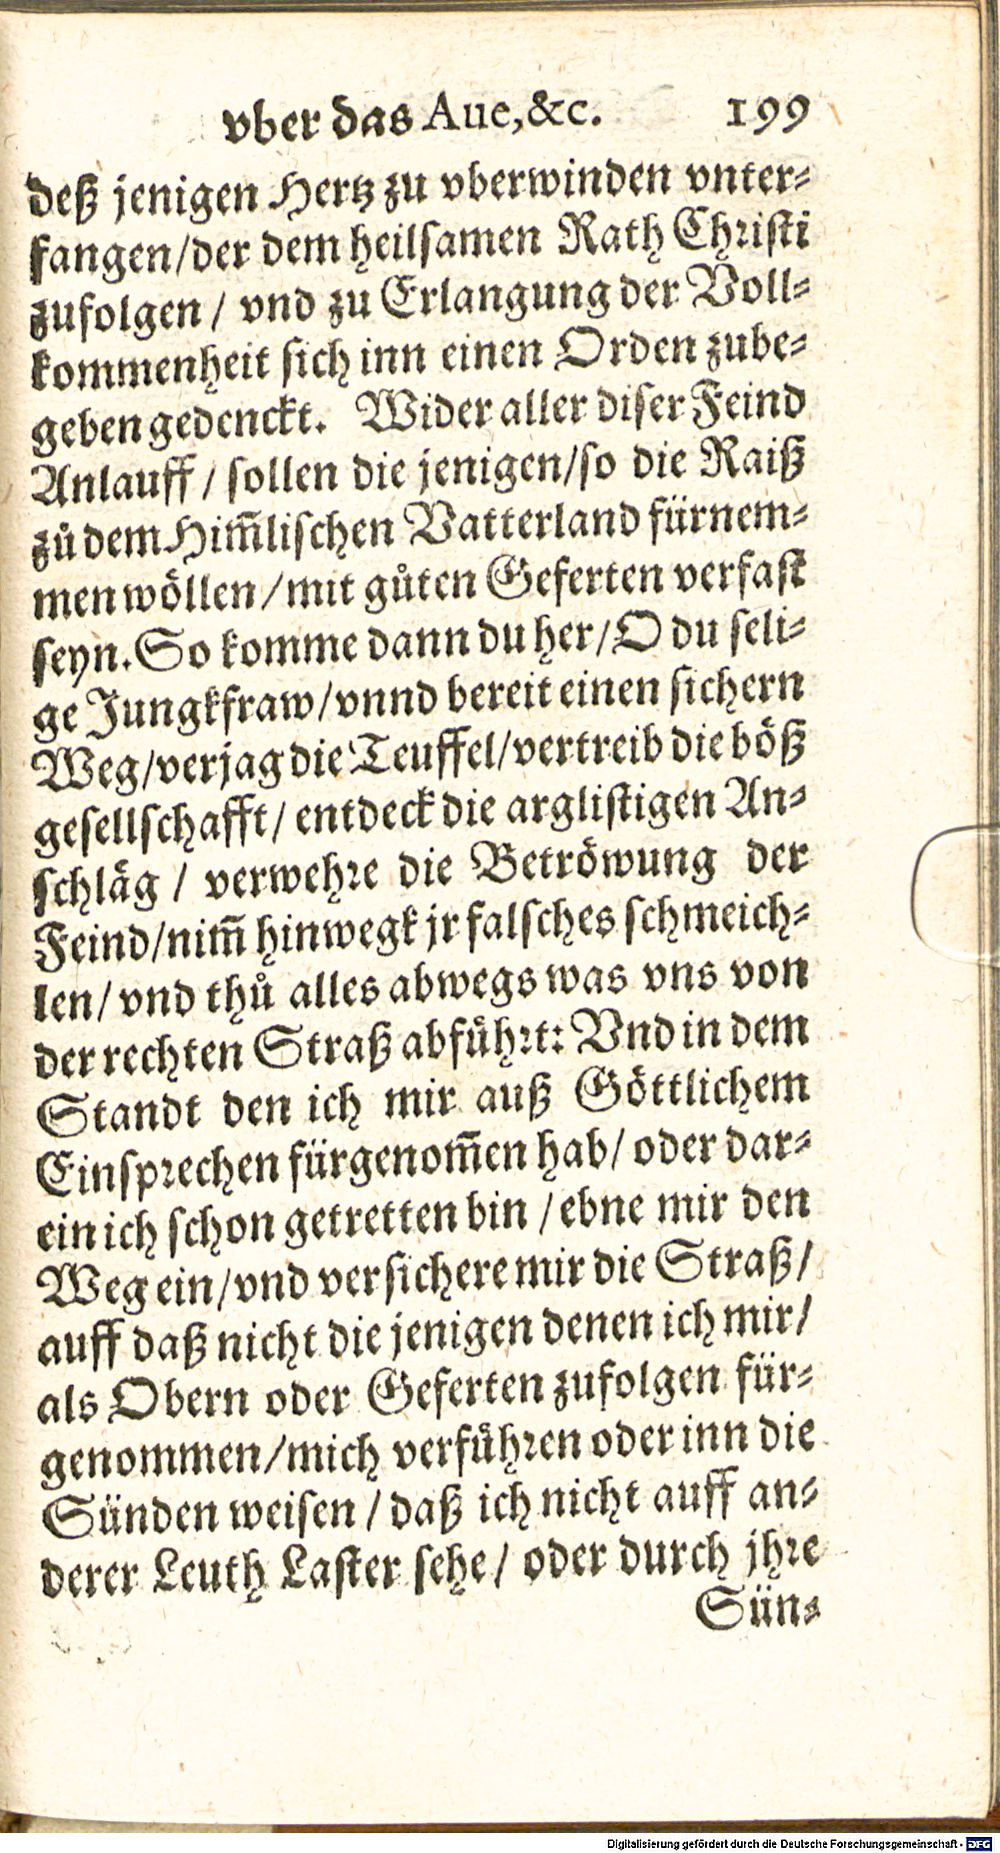 vber das Aue,&c. 199
deß jenigen Hertz zu vberwinden vnter⸗
fangen/der dem heilsamen Rath Christi
zufolgen / vnd zu Erlangung der Voll⸗
kommenheit sich inn einen Orden zube⸗
geben gedenckt. Wider aller diser Feind
Anlauff / sollen die jenigen/so die Raiß
zů dem Him̃lischen Vatterland fürnem⸗
men wöllen/mit gůten Geferten verfast
seyn. So komme dann du her/O du seli⸗
ge Jungkfraw/vnnd bereit einen sichern
Weg/verjag die Teuffel/vertreib die böß
gesellschafft/ entdeck die arglistigen An⸗
schläg / verwehre die Betröwung der
Feind/nim̃ hinwegk jr falsches schmeich⸗
len/ vnd thů alles abwegs was vns von
der rechten Straß abführt: Vnd in dem
Standt den ich mir auß Göttlichem
Einsprechen fürgenom̃en hab/ oder dar⸗
ein ich schon getretten bin /ebne mir den
Weg ein/vnd versichere mir die Straß/
auff daß nicht die jenigen denen ich mir/
als Obern oder Geferten zufolgen für⸗
genommen/mich verführen oder inn die
Sünden weisen / daß ich nicht auff an⸗
derer Leuth Laster sehe/ oder durch jhre
Sün⸗
Digitalisierung gefördert durch die Deutsche Forschungsgemeinschaft - DFG